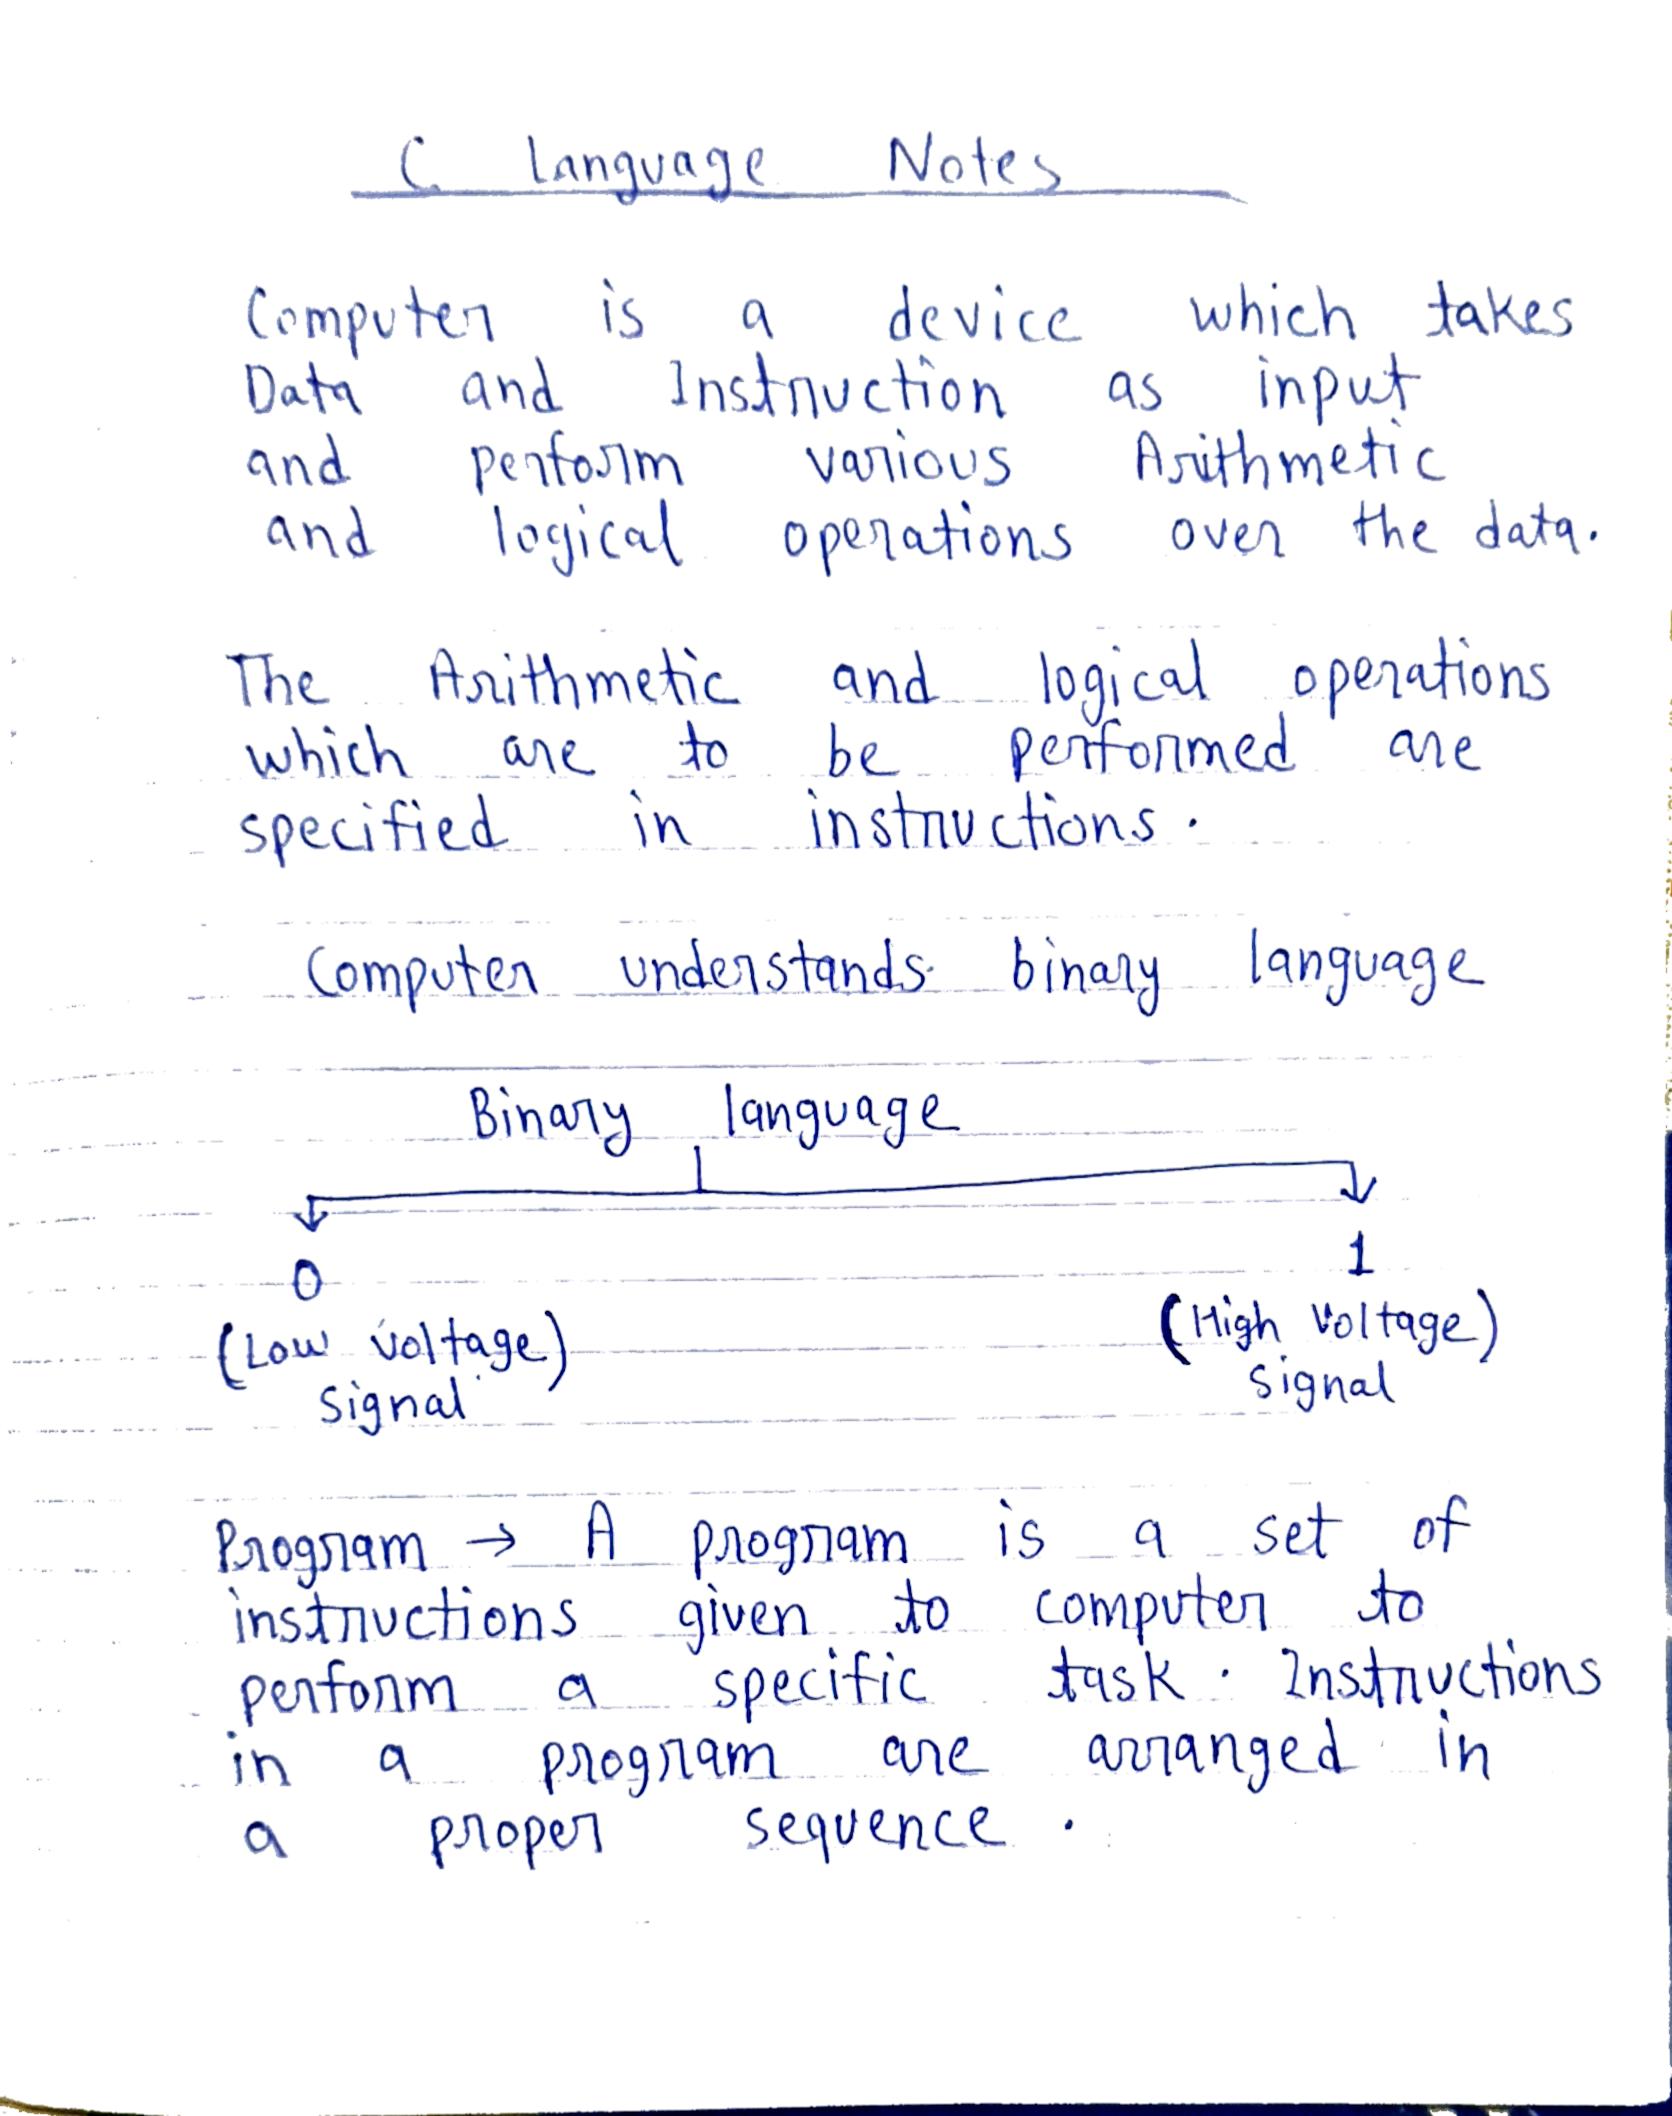 C Language Notes
Computer is a device which takes
Data and Instruction as input
and perform various Arithmetic
and logical operations over the data.
The Arithmetic and logical operations
which are to be performed are
specified in instructions.
Computer understands binary language
Binary language
0 1
(Low Voltage) (High Voltage)
signal signal
Program → A program is a set of
instructions given to computer to
perform a specific task. Instructions
in a program are arranged in
a proper sequence.